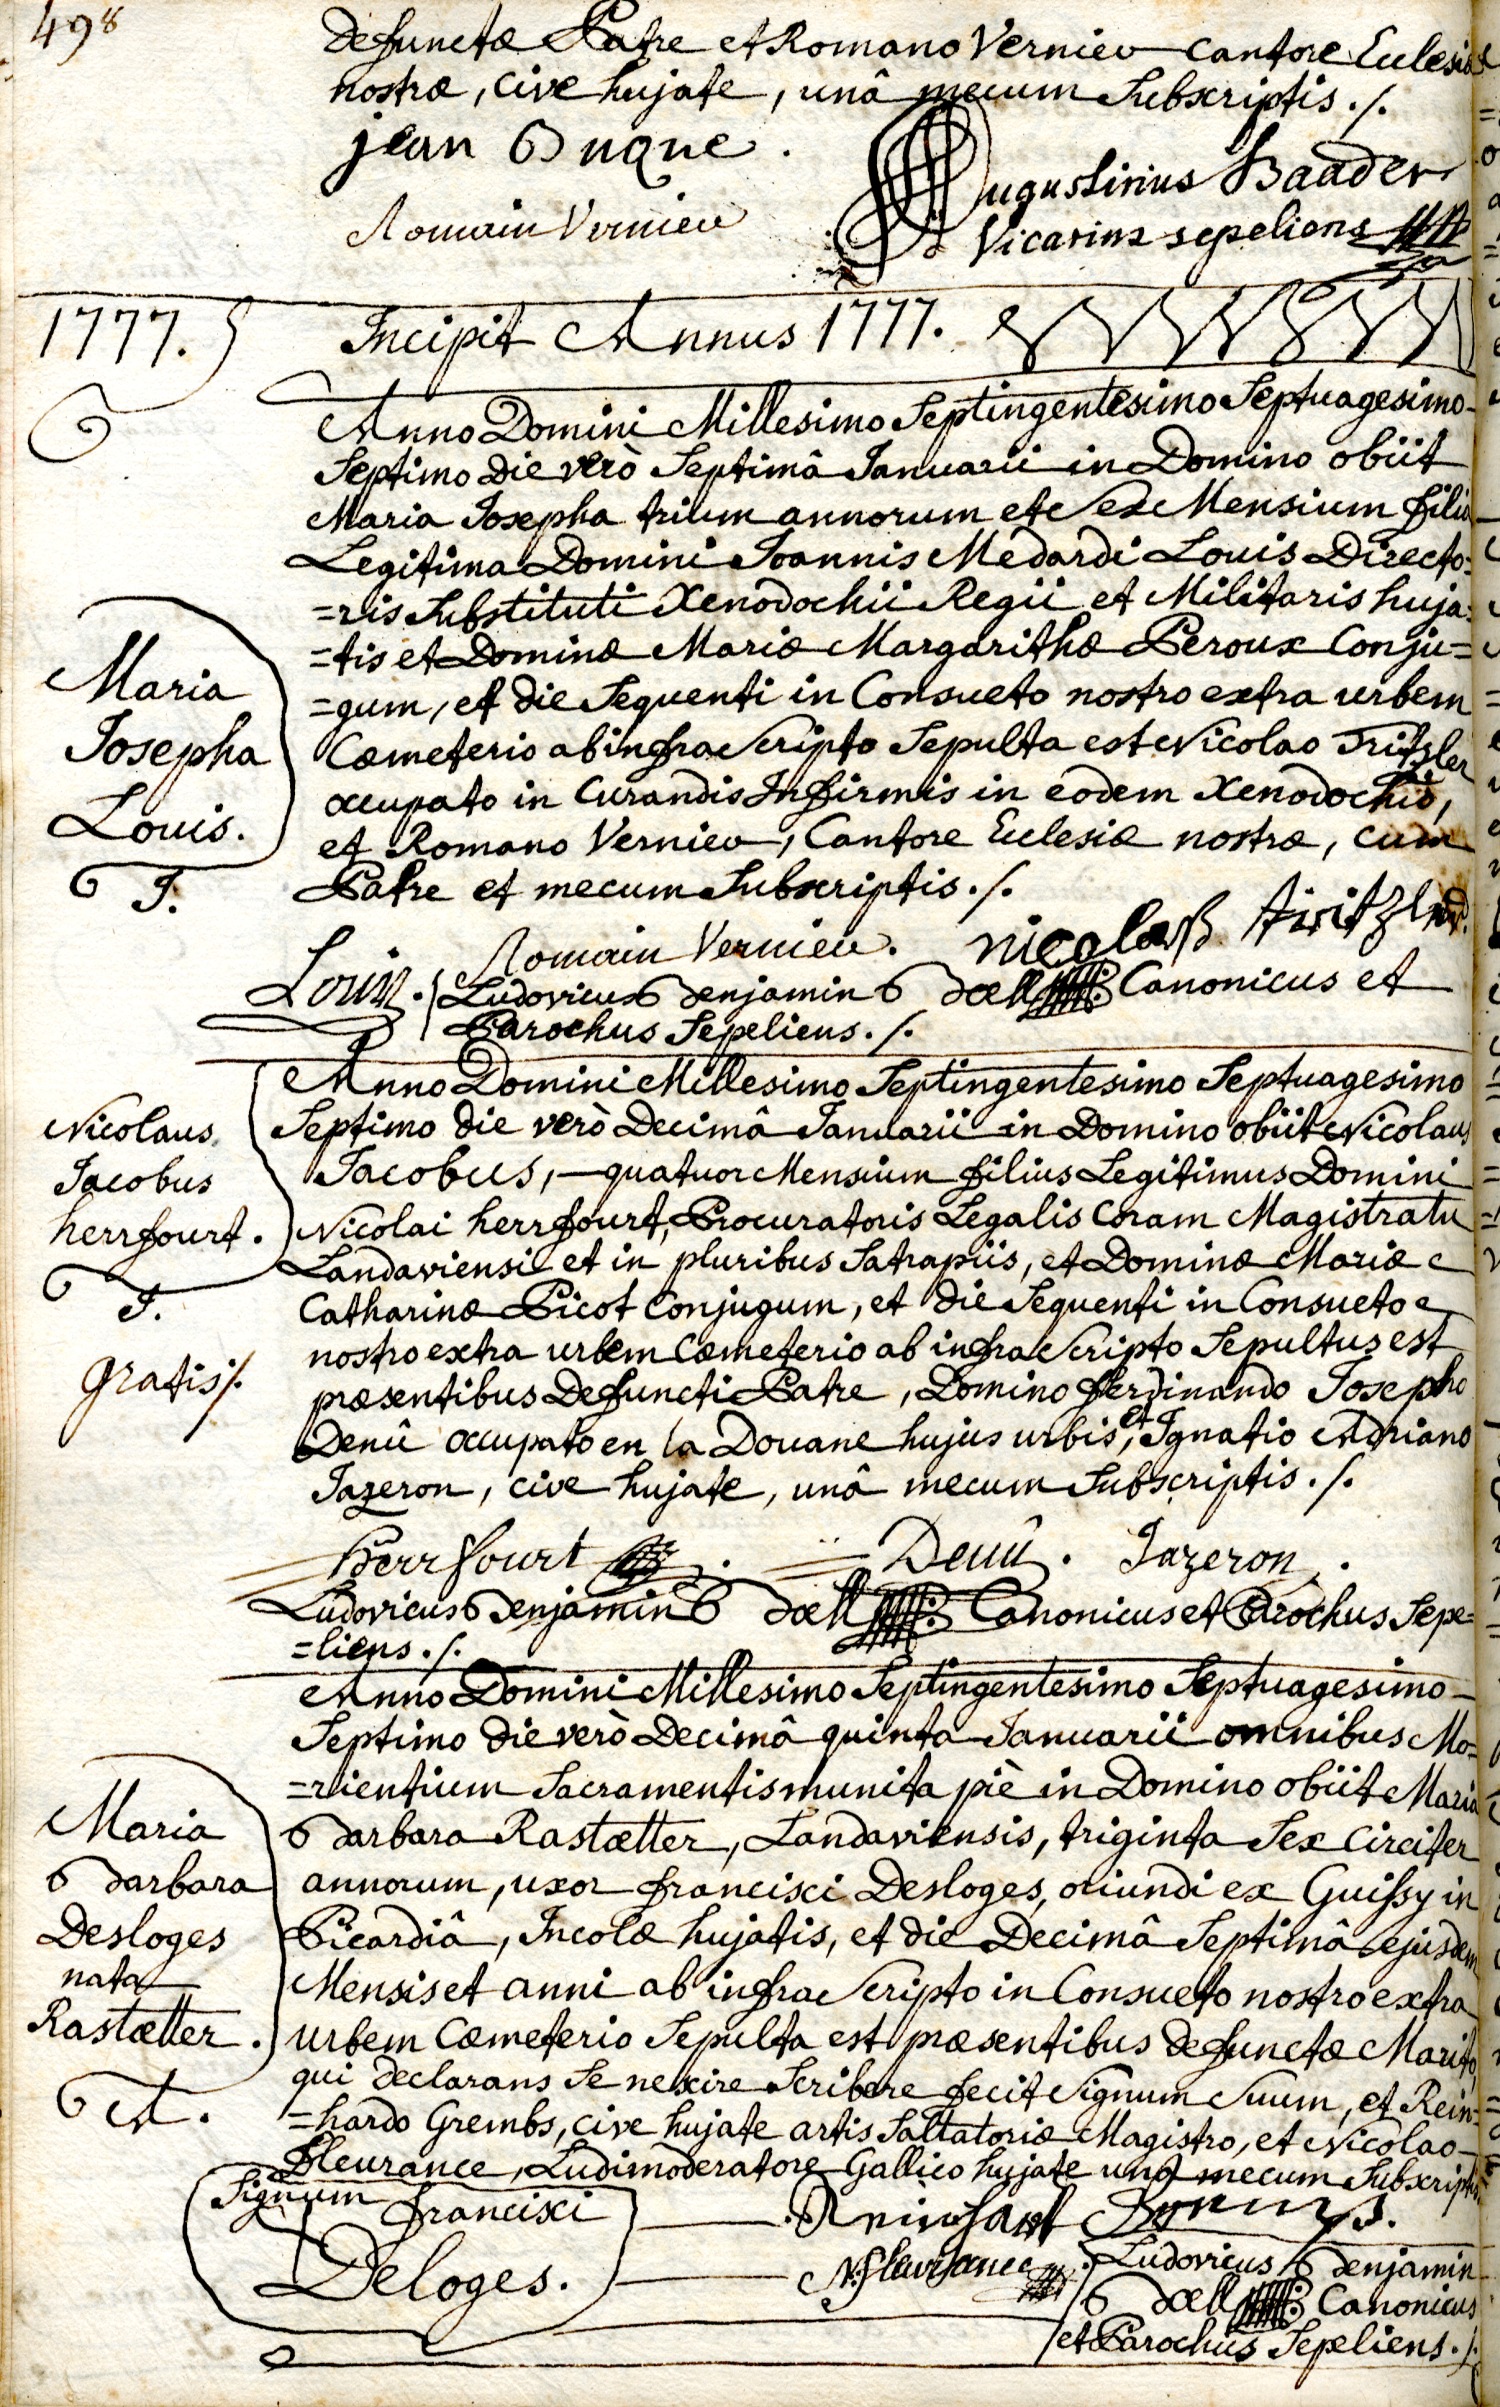 498
defunctæ Patre et Romano Vernieu cantore Eclesiæ
nostræ, cive hujate, unâ mecum Subscriptis ./.
jean Buque .
Augustinus Baader
Romain Vernieu
Vicarius sepeliens
1777.
Incipit Annus 1777.
Anno Domini Millesimo Septingentesimo Septuagesimo
Septimo die verò Septimâ Januarii in Domino obiit
Maria Josepha trium annorum et Sex Mensium filia
Legitima Domini Joannis Medardi Louis Directo=
=ris Substituti Xenodochii Regii et Militaris huja=
=tis et Dominæ Mariæ Margarithæ Peroux Conju=
=gum, et die Sequenti in Consueto nostro extra urbem
Cœmeterio ab infra Scripto Sepulta est Nicolao Tritzler
occupato in Curandis Infirmis in eodem Xenodochio,
et Romano Vernieu, Cantore Eclesiæ nostræ, cum
Patre et mecum Subscriptis ./.
Maria
Josepha
Louis.
J.
Romain Vernieu. nicolaß tritzler
Louis. Ludovicus Benjamin Bœll Canonicus et
Parochus Sepeliens ./.
Anno Domini Millesimo Septingentesimo Septuagesimo
Septimo die verò Decimâ Januarii in Domino obiit Nicolaus
Jacobus, quatuor Mensium filius Legitimus Domini
Nicolai herrfourt, Procuratoris Legalis Coram Magistratu
Landaviensi et in pluribus Satrapiis, et Dominæ Mariæ
Catharinæ Picot Conjugum, et die Sequenti in Consueto
nostro extra urbem Cœmeterio ab infra Scripto Sepultus est
præsentibus Defuncti Patre, Domino Ferdinando Josepho
Denû occupato en la Douane hujus urbis, et Ignatio Adriano
Jazeron, cive hujate, unâ mecum Subscriptis ./.
Nicolaus
Jacobus
herrfourt.
J.
gratis/.
Herrfourt . Denû . Jazeron .
Ludovicus Benjamin Bœll Canonicus et Parochus Sepe=
=liens ./.
Anno Domini Millesimo Septingentesimo Septuagesimo
Septimo die verò Decimâ quinta Januarii omnibus Mo=
=rientium Sacramentis munita piè in Domino obiit Maria
Barbara Rastætter, Landaviensis, triginta Sex Circiter
annorum, uxor francisci Desloges, oriundi ex Guissy in
Picardiâ, Incolæ hujatis, et die Decimâ Septimâ ejusdem
Mensis et anni ab infra Scripto in Consueto nostro extra
urbem Cœmeterio Sepulta est præsentibus defunctæ Marito,
qui declarans Se nescire Scribere fecit Signum Suum, et Rein=
=hardo Grembs, cive hujate artis Saltatoriæ Magistro, et Nicolao
Fleurance, Ludimoderatore Gallico hujate unâ mecum Subscriptis
Maria
Barbara
Desloges
nata
Rastætter.
A.
Signum francisci
Deloges.
N. fleurance
Ludovicus Benjamin
Bœll Canonicus
et Parochus Sepeliens ./.